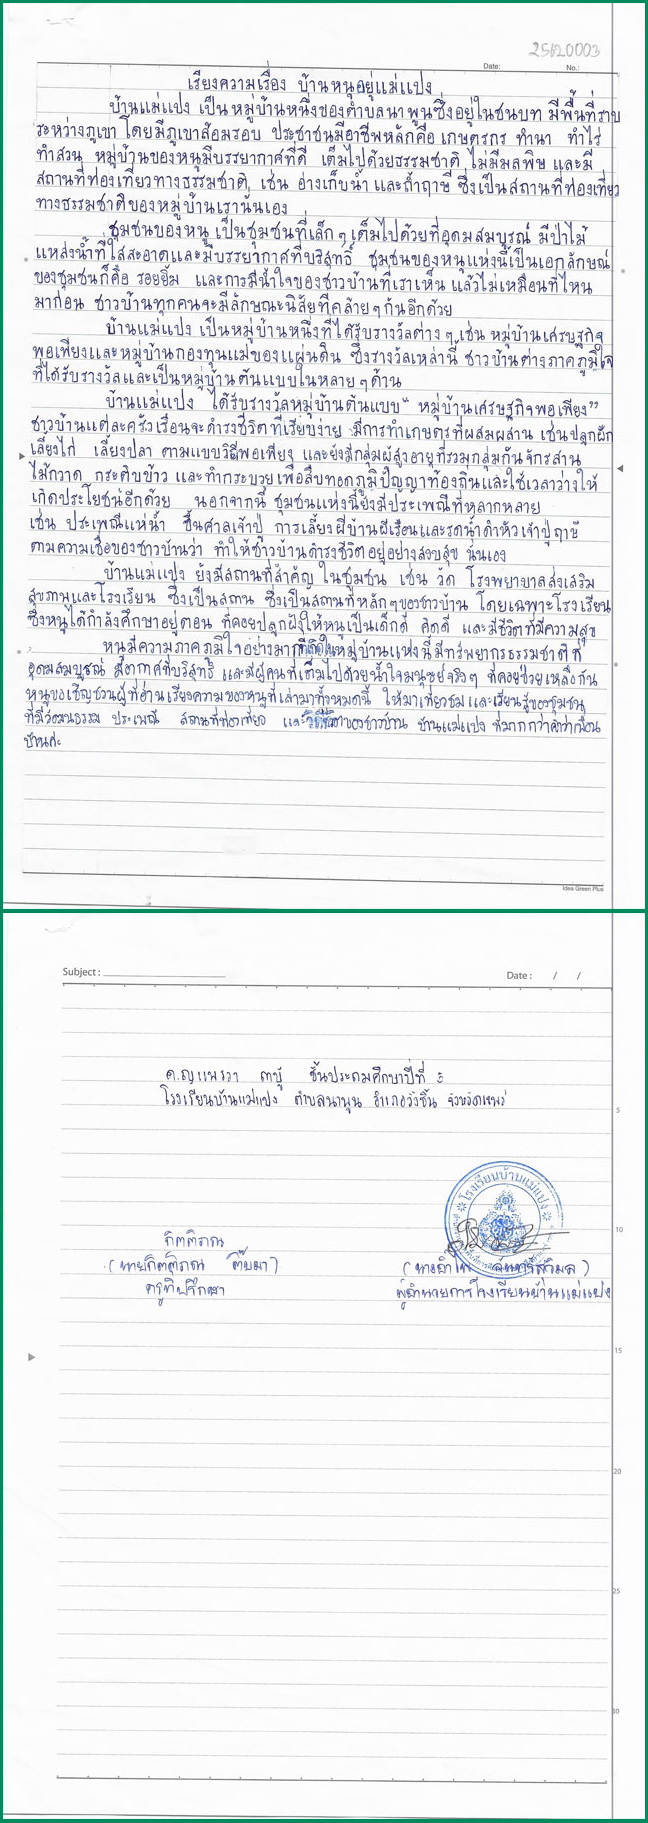 25120003
Date: No.:
เรียงความเรื่อง บ้านหนูอยู่แม่แปง
บ้านแม่แปง เป็น หมู่บ้านหนึ่งของตำบลนาพูนซึ่งอยู่ในชนบท มีพื้นที่ราบ
ระหว่างภูเขา โดยมีภูเขาล้อมรอบ ประชาชนมีอาชีพหลักคือ เกษตรกร ทำนา ทำไร่
ทำสวน หมู่บ้านของหนูมีบรรยากาศที่ดี เต็มไปด้วยธรรมชาติ ไม่มีมลพิษ และมี
สถานที่ท่องเที่ยวทางธรรมชาติ เช่น อ่างเก็บน้ำ และถ้ำฤาษี ซึ่งเป็นสถานที่ท่องเที่ยว
ทางธรรมชาติของหมู่บ้านเรานั่นเอง
ชุมชนของหนู เป็นชุมชนที่เล็ก ๆ เต็มไปด้วยที่อุดมสมบูรณ์ มีป่าไม้
แหล่งน้ำที่ใสสะอาดและมีบรรยากาศที่บริสุทธิ์ ชุมชนของหนูแห่งนี้เป็นเอกลักษณ์
ของชุมชนก็คือ รอยยิ้ม และการมีน้ำใจของชาวบ้านที่เราเห็น แล้วไม่เหมือนที่ไหน
มาก่อน ชาวบ้านทุกคนจะมีลักษณะนิสัยที่คล้ายๆกันอีกด้วย
บ้านแม่แปง เป็นหมู่บ้านหนึ่งที่ได้รับรางวัลต่างๆ เช่น หมู่บ้านเศรษฐกิจ
พอเพียงและหมู่บ้านกองทุนแม่ของแผ่นดิน ซึ่งรางวัลเหล่านี้ ชาวบ้านต่างภาคภูมิใจ
ที่ได้รับรางวัลและเป็นหมู่บ้านต้นแบบในหลายๆด้าน
บ้านแม่แปง ได้รับรางวัลหมู่บ้านต้นแบบ "หมู่บ้านเศรษฐกิจพอเพียง"
ชาวบ้านแต่ละครัวเรือนจะดำรงชีวิตที่เรียบง่าย มีการทำเกษตรที่ผสมผสาน เช่นปลูกผัก
เลี้ยงไก่ เลี้ยงปลา ตามแบบวิถีพอเพียง และยังมีกลุ่มผู้สูงอายุที่รวมกลุ่มกันจักรสาน
ไม้กวาด กระติบข้าว และทำกระบวย เพื่อสืบทอดภูมิปัญญาท้องถิ่นและใช้เวลาว่างให้
เกิดประโยชน์อีกด้วย นอกจากนี้ ชุมชนแห่งนี้ยังมีประเพณีที่หลากหลาย
เช่น ประเพณีแห่น้ำ ขึ้นศาลเจ้าปู่ การเลี้ยงผีบ้านผีเรือนและรดน้ำดำหัวเจ้าปู่ฤาษี
ตามความเชื่อของชาวบ้านว่า ทำให้ชาวบ้านดำรงชีวิตอยู่อย่างสงบสุข นั่นเอง
บ้านแม่แปง ยังมีสถานที่สำคัญ ในชุมชน เช่น วัด โรงพยาบาลส่งเสริม
สุขภาพและโรงเรียน ซึ่งเป็นสถาน ซึ่งเป็นสถานที่หลักๆของชาวบ้าน โดยเฉพาะโรงเรียน
ซึ่งหนูได้กำลังศึกษาอยู่ตอน ที่คอยปลูกฝังให้หนูเป็นเด็กดี คิดดี และมีชีวิตที่มีความสุข
หนูมีความภาคภูมิใจอย่างมากที่เกิดในหมู่บ้านแห่งนี้ มีทรัพยากรธรรมชาติที่
อุดมสมบูรณ์ มีอากาศที่บริสุทธิ์ และมีผู้คนที่เต็มไปด้วยน้ำใจมนุษย์จริงๆ ที่คอยช่วยเหลือกัน
หนูขอเชิญชวนผู้ที่อ่านเรียงความของหนูที่เล่ามาทั้งหมดนี้ ให้มาเที่ยวชมและเรียนรู้ของชุมชน
ที่มีวัฒนธรรม ประเพณี สถานที่ท่องเที่ยว และวิถีชีวิตของชาวบ้าน บ้านแม่แปง ที่มากกว่าคำว่าเพื่อน
บ้านค่ะ
Idea Green Plus
Subject : Date : / /
ด.ญ แพรวา ชั้นประถมศึกษาปีที่ 5
โรงเรียนบ้านแม่แปง ตำบลนาพูน อำเภอวังชิ้น จังหวัดแพร่
5
โรงเรียนบ้านแม่แปง
10
กิตติภณ
(นายกิตติภณ
ครูที่ปรึกษา
ผู้อำนวยการโรงเรียนบ้านแม่แปง
15
20
25
30